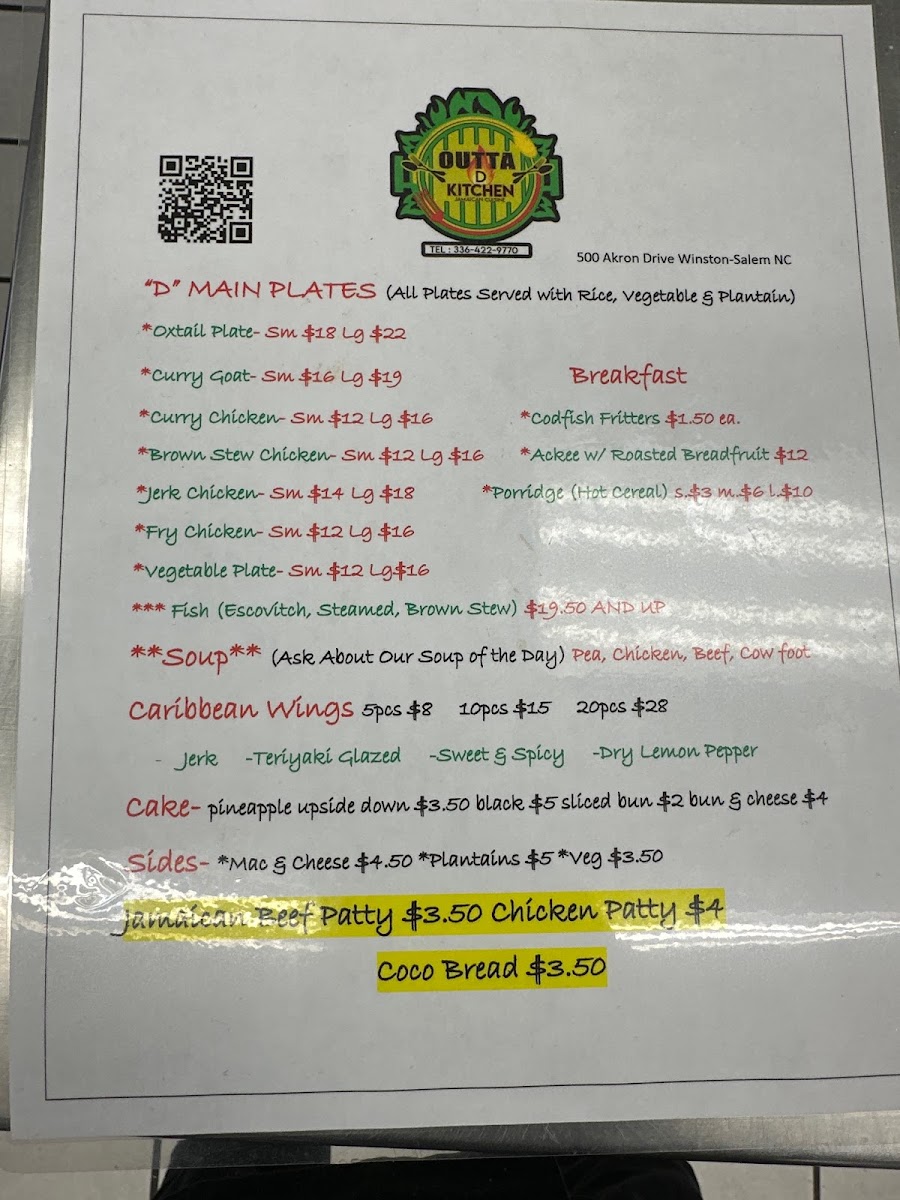 OUTTA
D
KITCHEN
JAMAICAN CUISINE
TEL : 336-422-9770
500 Akron Drive Winston-Salem NC
"D" MAIN PLATES (All Plates Served with Rice, Vegetable & Plantain)
*Oxtail Plate- Sm $18 Lg $22
*Curry Goat- Sm $16 Lg $19
*Curry Chicken- Sm $12 Lg $16
*Brown Stew Chicken- Sm $12 Lg $16
*Jerk Chicken- Sm $14 Lg $18
*Fry Chicken- Sm $12 Lg $16
*Vegetable Plate- Sm $12 Lg$16
*** Fish (Escovitch, Steamed, Brown Stew) $19.50 AND UP
Breakfast
*Codfish Fritters $1.50 ea.
*Ackee w/ Roasted Breadfruit $12
*Porridge (Hot Cereal) s.$3 m.$6 l.$10
**Soup** (Ask About Our Soup of the Day) Pea, Chicken, Beef, Cow foot
Caribbean Wings 5pcs $8 10pcs $15 20pcs $28
- Jerk -Teriyaki Glazed -Sweet & Spicy -Dry Lemon Pepper
Cake- pineapple upside down $3.50 black $5 sliced bun $2 bun & cheese $4
Sides- *Mac & Cheese $4.50 *Plantains $5 *Veg $3.50
Jamaican Beef Patty $3.50 Chicken Patty $4
Coco Bread $3.50